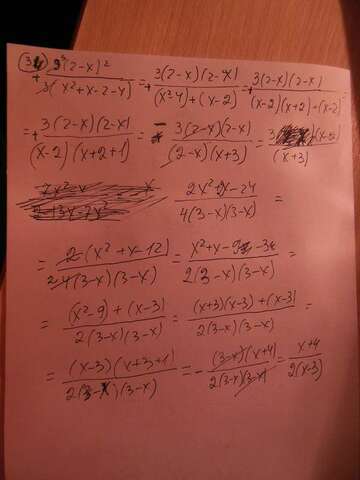 + 3²(2-x)² / 3(x²+x-2-4) = + 3(2-x)(2-x) / (x²-4)+(x-2) = + 3(2-x)(2-x) / (x-2)(x+2)+(x-2) =
= + 3(2-x)(2-x) / (x-2)(x+2+1) = - 3(2-x)(2-x) / (2-x)(x+3) = 3 (x-2) / (x+3)
2x²+2x-24 / 4(3-x)(3-x) =
= 2(x²+x-12) / 4(3-x)(3-x) = x²+x-9-3 / 2(3-x)(3-x) =
= (x²-9)+(x-3) / 2(3-x)(3-x) = (x+3)(x-3)+(x-3) / 2(3-x)(3-x) =
= (x-3)(x+3+1) / 2(3-x)(3-x) = - (3-x)(x+4) / 2(3-x)(3-x) = x+4 / 2(x-3)